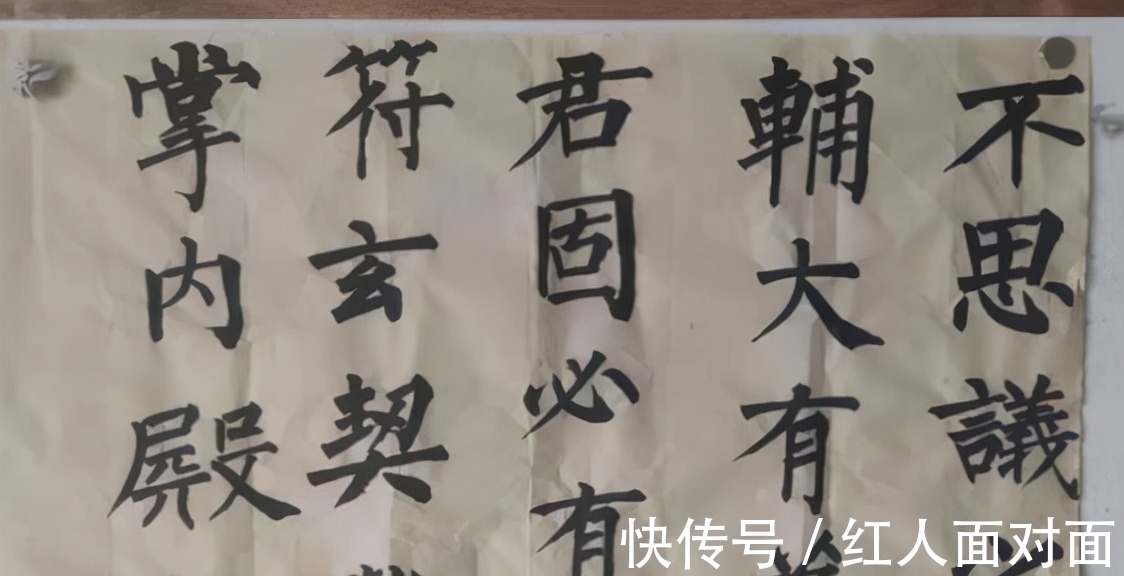 不思議
輔大有
君固必有
符玄契
掌内殿
快传号 / 红人面对面